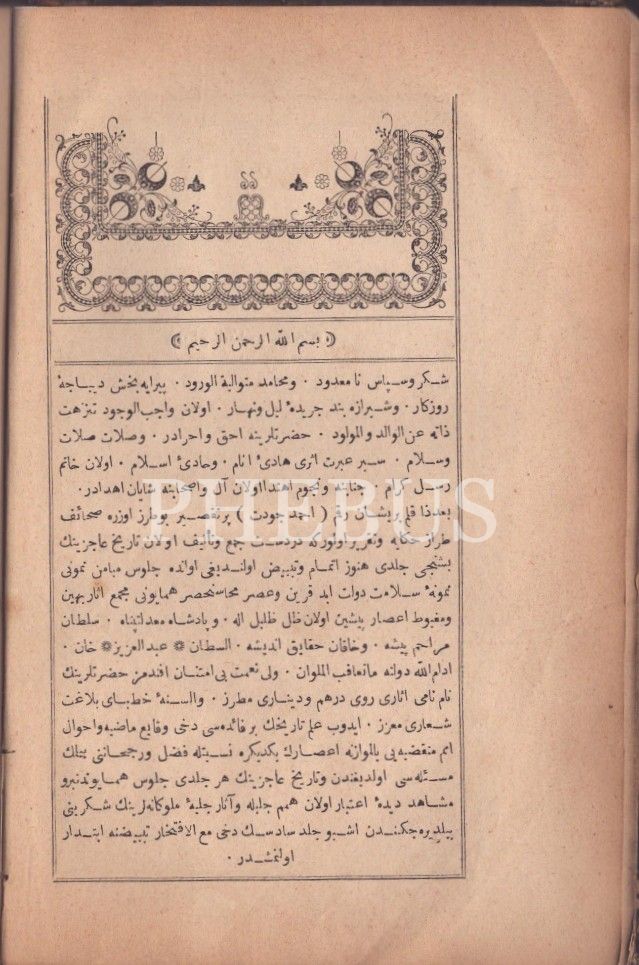 بسم الله الرحمن الرحيم
شكر وسپاس نامعدود ٠ ومحامد متوالية الورود ٠ پيرايه بخش ديباجهٔ
روزكار ٠ وشيرازه بند جريدهٔ ليل ونهار ٠ اولان واجب الوجود تنزهت
ذاته عن الوالد والمولود ٠ حضرتلرينه احق واحرادر ٠ وصلات صلات
وسلام ٠ سبر عبرت اثرى هادئ انام ٠ وحادئ اسلام ٠ اولان خاتم
رسل كرام ٠ جنابنه ونجوم اهتدا اولان آل واصحابنه شايان اهدادر ٠
بعدذا قلم پريشان رقم ( احمد جودت ) پرتقصير بوطرز اوزره صحائف
طراز حكايه وتقرير اولورك دردست جمع وتأليف اولان تاريخ عاجزينك
بشنجى جلدى هنوز اتمام وتبييض اولنديغى اوانده جلوس ميامن نمونى
نمونهٔ سلامت دولت ابد قرين وعصر محاسنحصر همايونى مجمع آثار بهين
ومغبوط اعصار پيشين اولان ظل ظليل اله ٠ وپادشاه معدلتپناه ٠ سلطان
مراحم پيشه ٠ وخاقان حقايق انديشه ٠ السطان ❊ عبدالعزيز ❊ خان ٠
ادام الله دولته ماتعاقب الملوان ٠ ولى نعمت بى امتنان افندمز حضرتلرينك
نام نامى آثارى روى درهم ودينارى مطرز ٠ والسنهٔ خطباى بلاغت
شعارى معزز ٠ ايدوب علم تاريخك بر فائده سى دخى وقايع ماضيه واحوال
امم منقضيه بى بالموازنه اعصارك يكديكره نسبتله فضل ورجحاننى بتلك
مسئله سى اولديغندن وتاريخ عاجزينك هر جلدى جلوس همايوندنبرو
مشاهد ديدهٔ اعتبار اولان همم جليله وآثار جليهٔ ملوكانه لرينك شكرينى
بيلديره جكندن اشبو جلد سادسك دخى مع الافتخار تبييضنه ابتدار
اولنمشدر ٠
PHEBUS